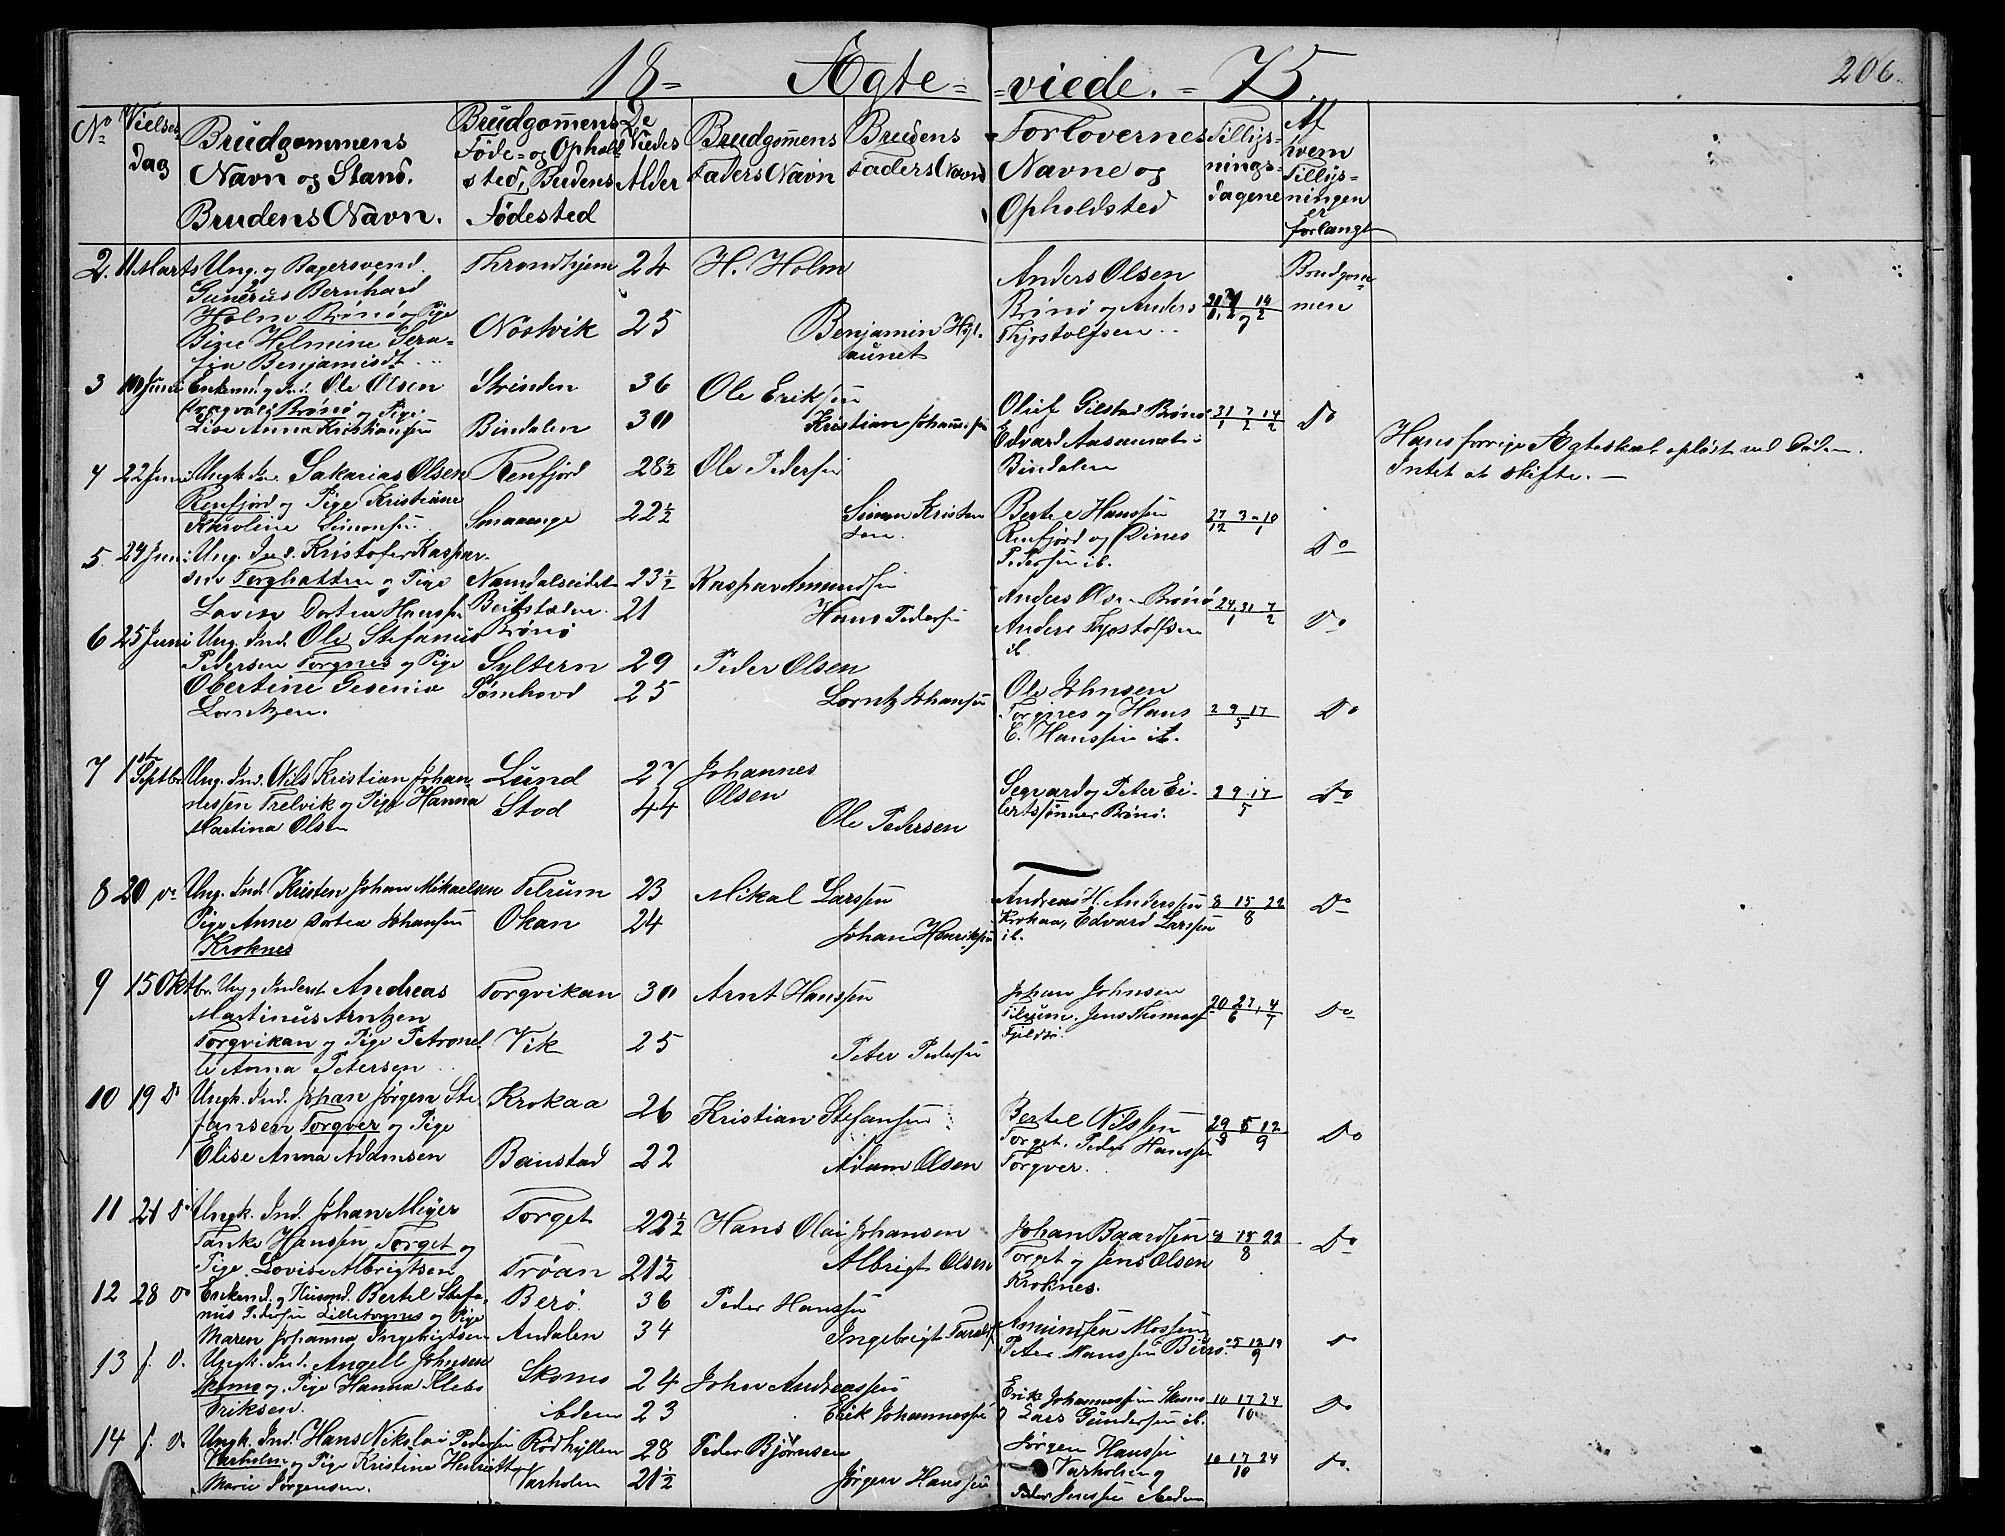 18 = Ægte = = viede. = 75.
206.
No
Vielses
dag
Brudgommens
Navn og Stand.
Brudens Navn.
Brudgommens
Føde- og Ophold
sted, Brudens
Fødested
De
Viedes
Alder
Brudgommens
Faders Navn
Brudens
Faders Navn
Forlovernes
Navne og
Opholdsted
Tillys-
nings-
dagene
Af
hvem
Tillys-
ningen
er
forlangt
2. 11 Marts Ung. og Bagersvend
Gunerus Bernhard
Holm Brønø og Pige
Pige Helmine Sera-
fin Benjamisdt.
Throndhjem 24 H. Holm
Nostvik 25 Benjamin Hyl-
aunet
Anders Olsen
Brønø og Anders
Thjostolfsen
14
2
Brudgom-
men
3 10 Juni Enkemd. og Ind. Ole Olsen
Brønø og Pige
Lise Anna Kristiansen
Strinden 36 Ole Eriksen
Bindalen 30 Kristian Johansen
Oluf Gilstad Brønø
Edvard Aasaunet
Bindalen
31 7 14
1 2
Do
Hans forrige Ægteskab opløst ved Døden.
Intet at skifte. —
4 22 Juni Ungk. Ind. Sakarias Olsen
Renfjord og Pige Kristiane
Karoline Simonsen
Renfjord 28½ Ole Pedersen
Smaaenge 22½ Simon Kristen
sen.
Bertel Hanssen
Renfjord og Dines
Pedersen ib.
27 3 10
12 1
Do
5 24 Juni Ung. Ind. Kristofer Kaspar-
sen Torghatten og Pige
Laven Dortea Hanssen
Namdalseidet 23½ Kaspar Amundsen
Beitstaden 21 Hans Pedersen
Anders Olsen Brønø
Anders Thjostolfsen
ib.
24 31 7
1 2
Do
6 25 Juni Ung. Ind. Ole Stefanus
Pedersen Torgnes og Pige
Obertine Gesenia
Lorntzen.
Brønø
Syltern 29 Peder Olsen
Sømhovd 25 Lorntz Johansen
Ole Johnsen
Torgnes og Hans
E. Hanssen ib.
2 9 17
5
Do
7 1st Septbr. Ung. Ind. Nils Kristian Johan-
nessen Trelvik og Pige Hanna
Martina Olsen
Lund 27 Johannes
Olsen
Stod 44 Ole Pedersen
Segvard og Peter Ei-
lertsønner Brønø.
2 9 17
5
Do
8 20 Do Ung. Ind. Kristen Johan Mikaelsen
Pige Anne Dortea Johansen
Kroknes
Tilrum 23 Mikal Larssen
Okan 24 Johan Henriksen
Andreas H. Anderssen
Krokaa, Edvard Larssen
ib.
8 15 22
8
Do
9 15 Oktbr. Ung. Inderst Andreas
Martinus Arntzen
Torgvikan og Pige Petronel-
le Anna Petersen
Torgvikan 30 Arnt Hanssen
Vik 25 Peter Pedersen
Johan Johnsen
Tilrum. Jens Thomass.
Fjeldsø.
20 27 4
6 7
Do
10 19 Do Ungk. Ind. Johan Jørgen Ste-
fansen Torgver og Pige
Elise Anna Adamsen
Krokaa 26 Kristian Stefansen
Baustad 22 Adam Olsen
Bertel Nilssen
Torget. Peder Hanssen
Torgver.
29 5 12
8 9
Do
11 21 Do Ungk. Ind. Johan Meyer
Tanke Hanssen Torget og
Pige Lovise Albrigtsen
Torget 22½ Hans Olai Johansen
Trøan 21½ Albrigt Olsen
Johan Baardsen
Torget og Jens Olsen
Kroknes.
15 22
8
Do
12 28 Do Enkemd. og Husmd. Bertel Stefa-
nus Pedersen Lilletorgnes og Pige
Maren Johanna Ingebrigtsen
Berø. 36 Peder Hanssen
Andalen 34 Ingebrigt Taralds.
Amundsen Mossem
Peter Hanssen
5 12 19
9
Do
13 f. D. Ungk. Ind. Angell Johnsen
Skomo og Pige Hanna Klebo
Eriksen.
Skomo 24 John Andreassen
ibdem 23 Erik Johannessen
Erik Johannessen Skomo
og Lars Gundersen ib.
10 17 24
10
Do
14 f. Do Ungk. Ind. Hans Nikolai Pedersen
Varholm og Pige Kristina Henriette
Marie Jørgensen.
Rødhyllen 28 Peder Bjørnsen
Varholm 21½ Jørgen Hanssen
Jørgen Hanssen
Varholm og
Peder Jenssen ibidem
10 17 24
10
Do.